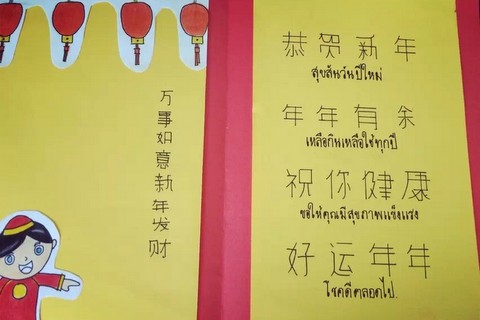 万事如意新年发财
恭贺新年
สุขสันวันปีใหม่
年年有余
เหลือกินเหลือใช้ทุกปี
祝你健康
ขอให้คุณมีสุขภาพแข็งแรง
好运年年
โชคดีตลอดไป.